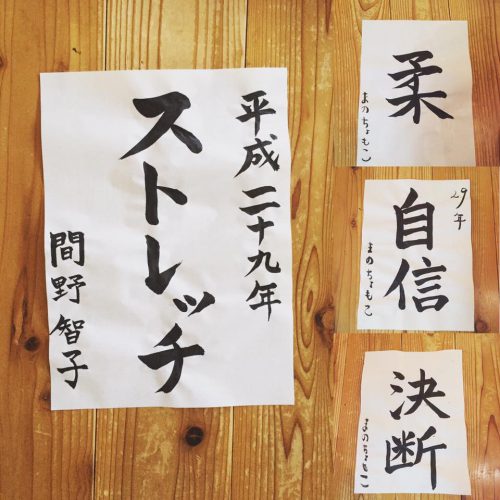 平成二十九年
ストレッチ
間野智子
柔
まのちょもこ
29年
自信
まのちょもこ
決断
まのちょもこ